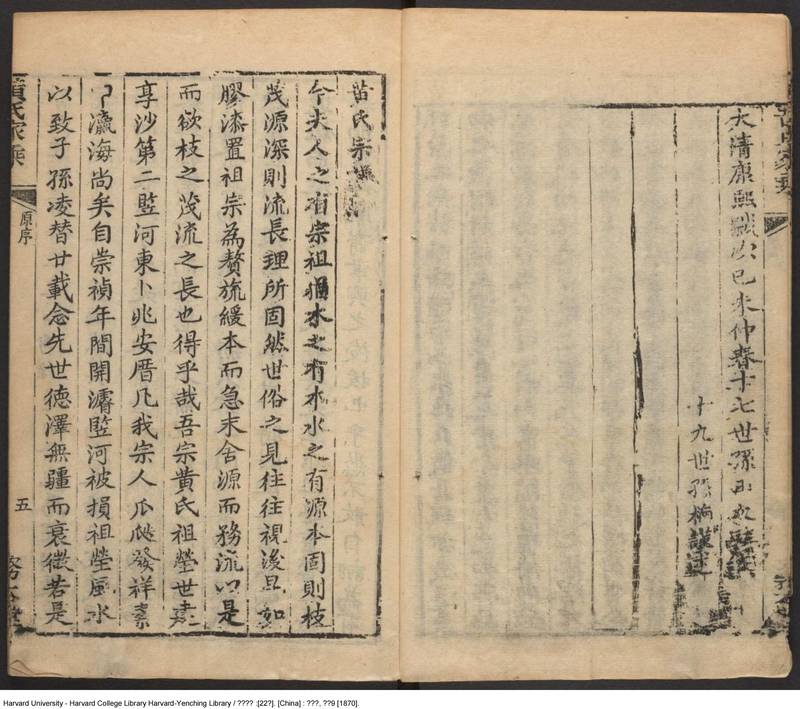 大清康熙歲次己未仲春十七世孫
十九世孫梅謹述
黃氏宗譜
今夫人之有宗祖猶木之有本水之有源本固則枝
茂源深則流長理所固然世俗之見往往視後昆如
膠漆置祖宗為贅旒緩本而急末舍源而務流以是
而欲枝之茂流之長也得乎哉吾宗黃氏祖塋世葬
享沙第二竪河東卜兆安厝凡我宗人瓜瓞發祥素
瀛海尚矣自崇禎年間開濬竪河被損祖塋風水
以致子孫凌替廿載念先世德澤無疆而衰微若是
黃氏家乘
原序
五
Harvard University - Harvard College Library Harvard-Yenching Library / ???? :[22?]. [China] : ???, ??9 [1870].